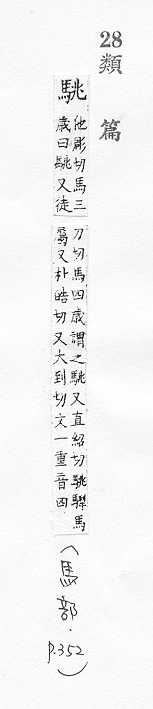 28
類篇
駣
他彫切馬三
歲曰駣又徒
刀切馬四歲謂之駣又直紹切駣馬
屬又朴皓切又大到切文一重音四
(馬部.
p.352)